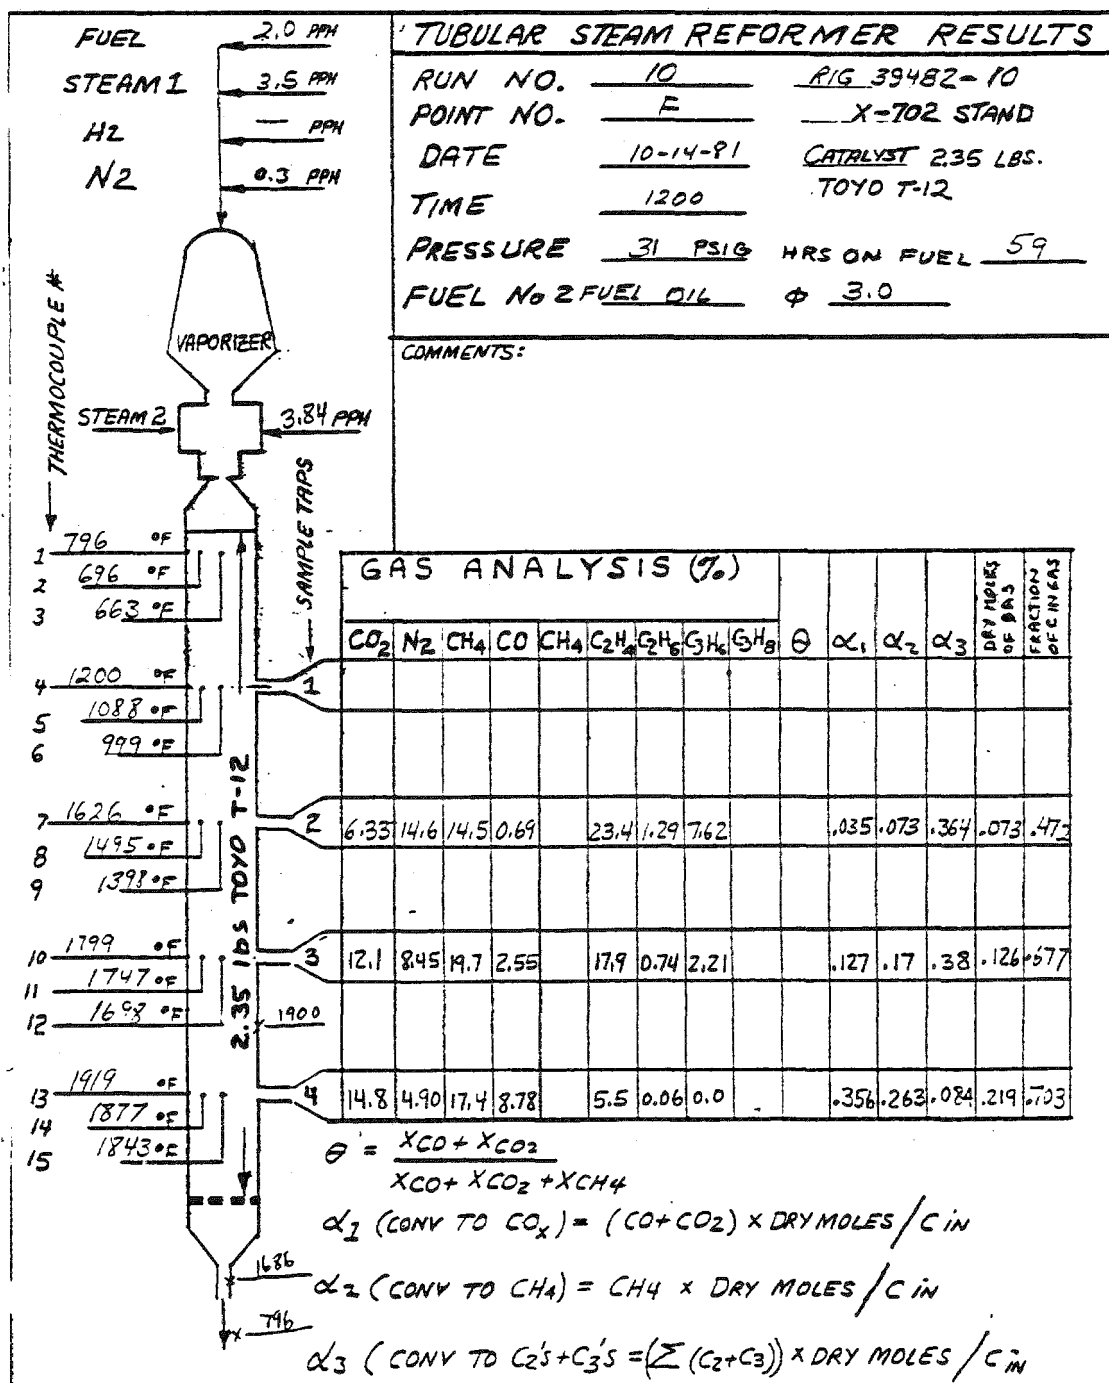 FUEL 2.0 PPH
STEAM 1 3.5 PPH
H2 — PPH
N2 0.3 PPH
TUBULAR STEAM REFORMER RESULTS
RUN NO. 10 RIG 39482-10
POINT NO. F X-702 STAND
DATE 10-14-81 CATALYST 2.35 LBS.
TOYO T-12
TIME 1200
PRESSURE 31 PSIG HRS ON FUEL 59
FUEL No 2 FUEL OIL Φ 3.0
COMMENTS:
THERMOCOUPLE #
VAPORIZER
STEAM 2 3.84 PPH
SAMPLE TAPS
1 796 °F
2 696 °F
3 663 °F
4 1200 °F
5 1088 °F
6 999 °F
7 1626 °F
8 1495 °F
9 1398 °F
10 1799 °F
11 1747 °F
12 1698 °F
1900
13 1919 °F
14 1877 °F
15 1843 °F
2.35 lbs TOYO T-12
GAS ANALYSIS (%)
CO2 N2 CH4 CO CH4 C2H4 C2H6 C3H6 C3H8 θ α1 α2 α3 DRY MOLES OF GAS FRACTION OF C IN GAS
1
2 6.33 14.6 14.5 0.69 23.4 1.29 7.62 .035 .073 .364 .073 .472
3 12.1 8.45 19.7 2.55 17.9 0.74 2.21 .127 .17 .38 .126 .677
4 14.8 4.90 17.4 8.78 5.5 0.06 0.0 .356 .263 .084 .219 .703
θ = XCO + XCO2
XCO + XCO2 + XCH4
α1 (CONV TO COx) = (CO+CO2) × DRY MOLES / C IN
1686
α2 (CONV TO CH4) = CH4 × DRY MOLES / C IN
796
α3 (CONV TO C2'S+C3'S = (Σ (C2+C3)) × DRY MOLES / C IN